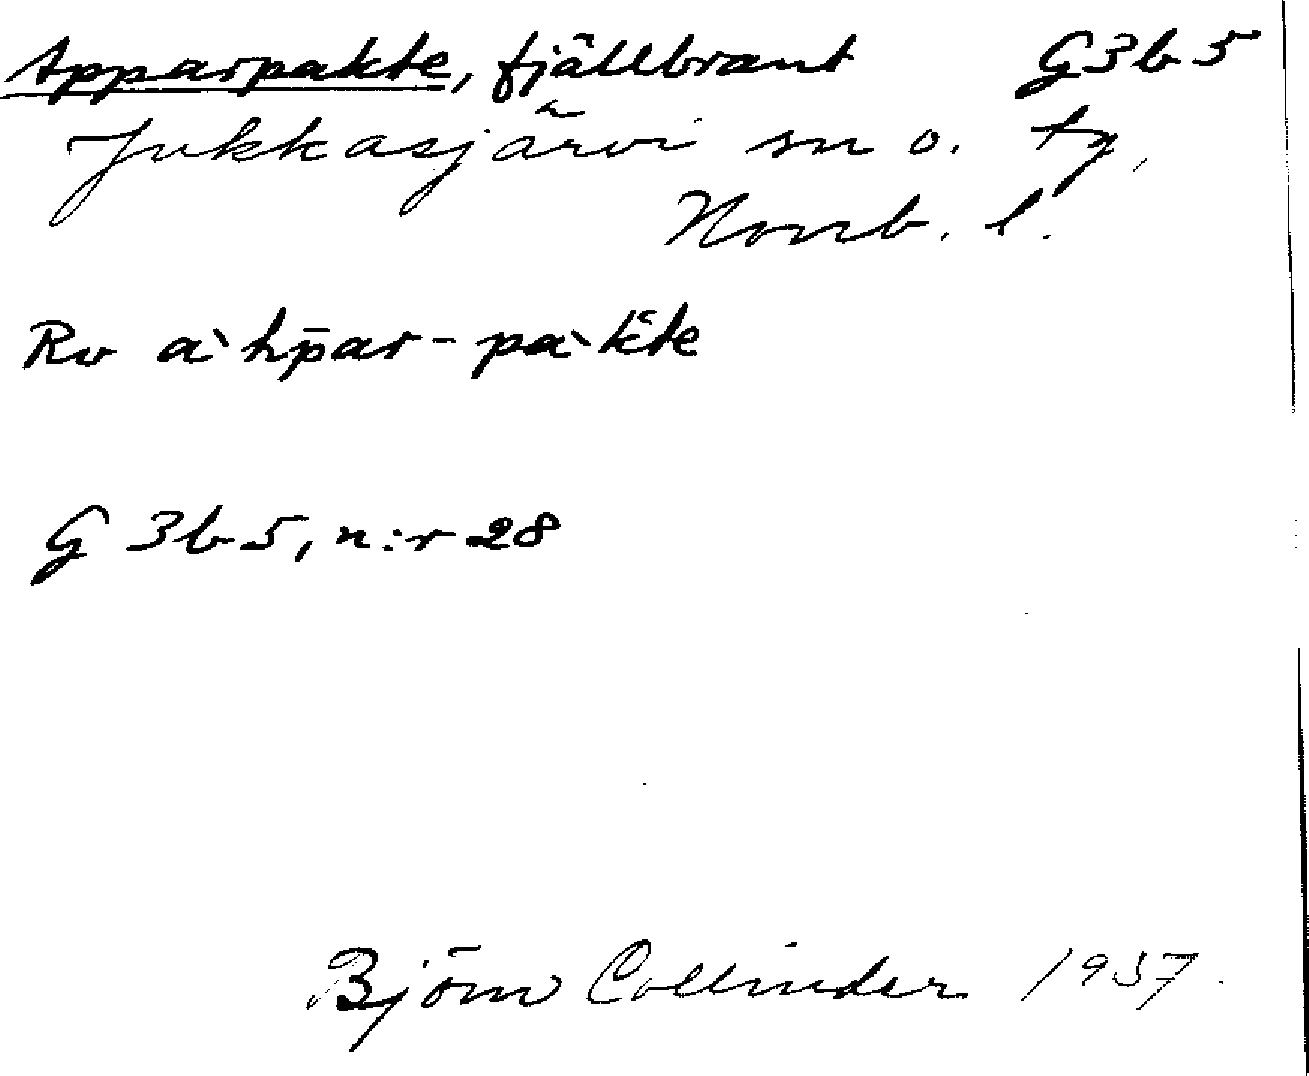 Apparpakte, fjällbrant G3b5
Jukkasjärvi sn o. tg,
Norrb. l.
Rv a`hp̄ar-pa`k̄te
G 3b5, n:r 28
Björn Collinder 1937.